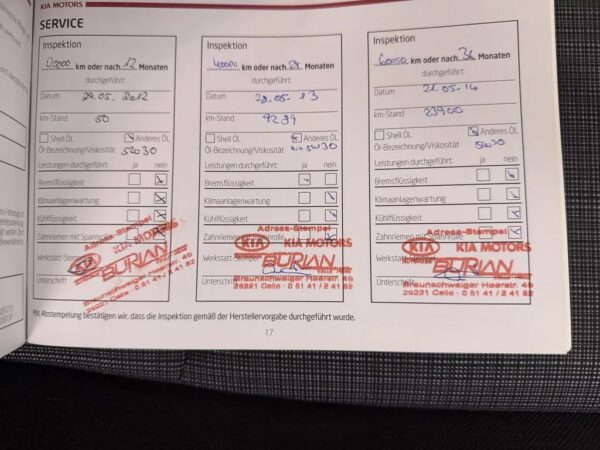 KIA MOTORS
SERVICE
Inspektion
20000 km oder nach 12 Monaten
durchgeführt:
Datum
29.05.2012
km-Stand
50
Shell ÖL Anderes ÖL
Öl-Bezeichnung/Viskosität 5w30
Leistungen durchgeführt: ja nein
Bremsflüssigkeit
Klimaanlagenwartung
Kühlflüssigkeit
Zahnriemen mit Spannrolle
Adress-Stempel
KIA KIA MOTORS
Werkstatt-Stempel
BURIAN
Braunschweiger Heerstr. 45
29221 Celle · 0 51 41 / 2 41 82
Unterschrift
Inspektion
40000 km oder nach 24 Monaten
durchgeführt:
Datum
28-05-13
km-Stand
9289
Shell ÖL Anderes ÖL
Öl-Bezeichnung/Viskosität kia 5w30
Leistungen durchgeführt: ja nein
Bremsflüssigkeit
Klimaanlagenwartung
Kühlflüssigkeit
Zahnriemen mit Spannrolle
Adress-Stempel
KIA KIA MOTORS
Werkstatt-Stempel
BURIAN
Braunschweiger Heerstr. 45
29221 Celle · 0 51 41 / 2 41 82
Unterschrift
Inspektion
60000 km oder nach 36 Monaten
durchgeführt:
Datum
21-05-14
km-Stand
23900
Shell ÖL Anderes ÖL
Öl-Bezeichnung/Viskosität 5w30
Leistungen durchgeführt: ja nein
Bremsflüssigkeit
Klimaanlagenwartung
Kühlflüssigkeit
Zahnriemen mit Spannrolle
Adress-Stempel
KIA KIA MOTORS
Werkstatt-Stempel
BURIAN
Braunschweiger Heerstr. 45
29221 Celle · 0 51 41 / 2 41 82
Unterschrift
Mit Abstempelung bestätigen wir, dass die Inspektion gemäß der Herstellervorgabe durchgeführt wurde.
17